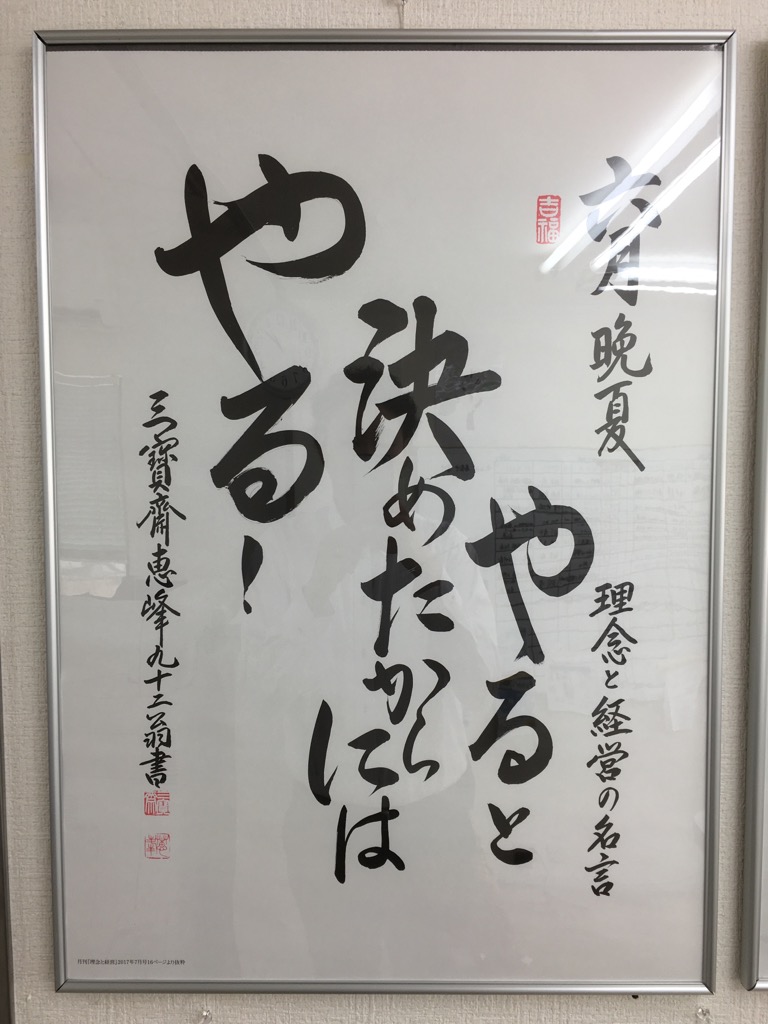 六月 晩夏
吉福
理念と経営の名言
やると
決めたからには
やる!
三寳齋恵峰九十二翁書
月刊『理念と経営』2017年7月号16ページより抜粋